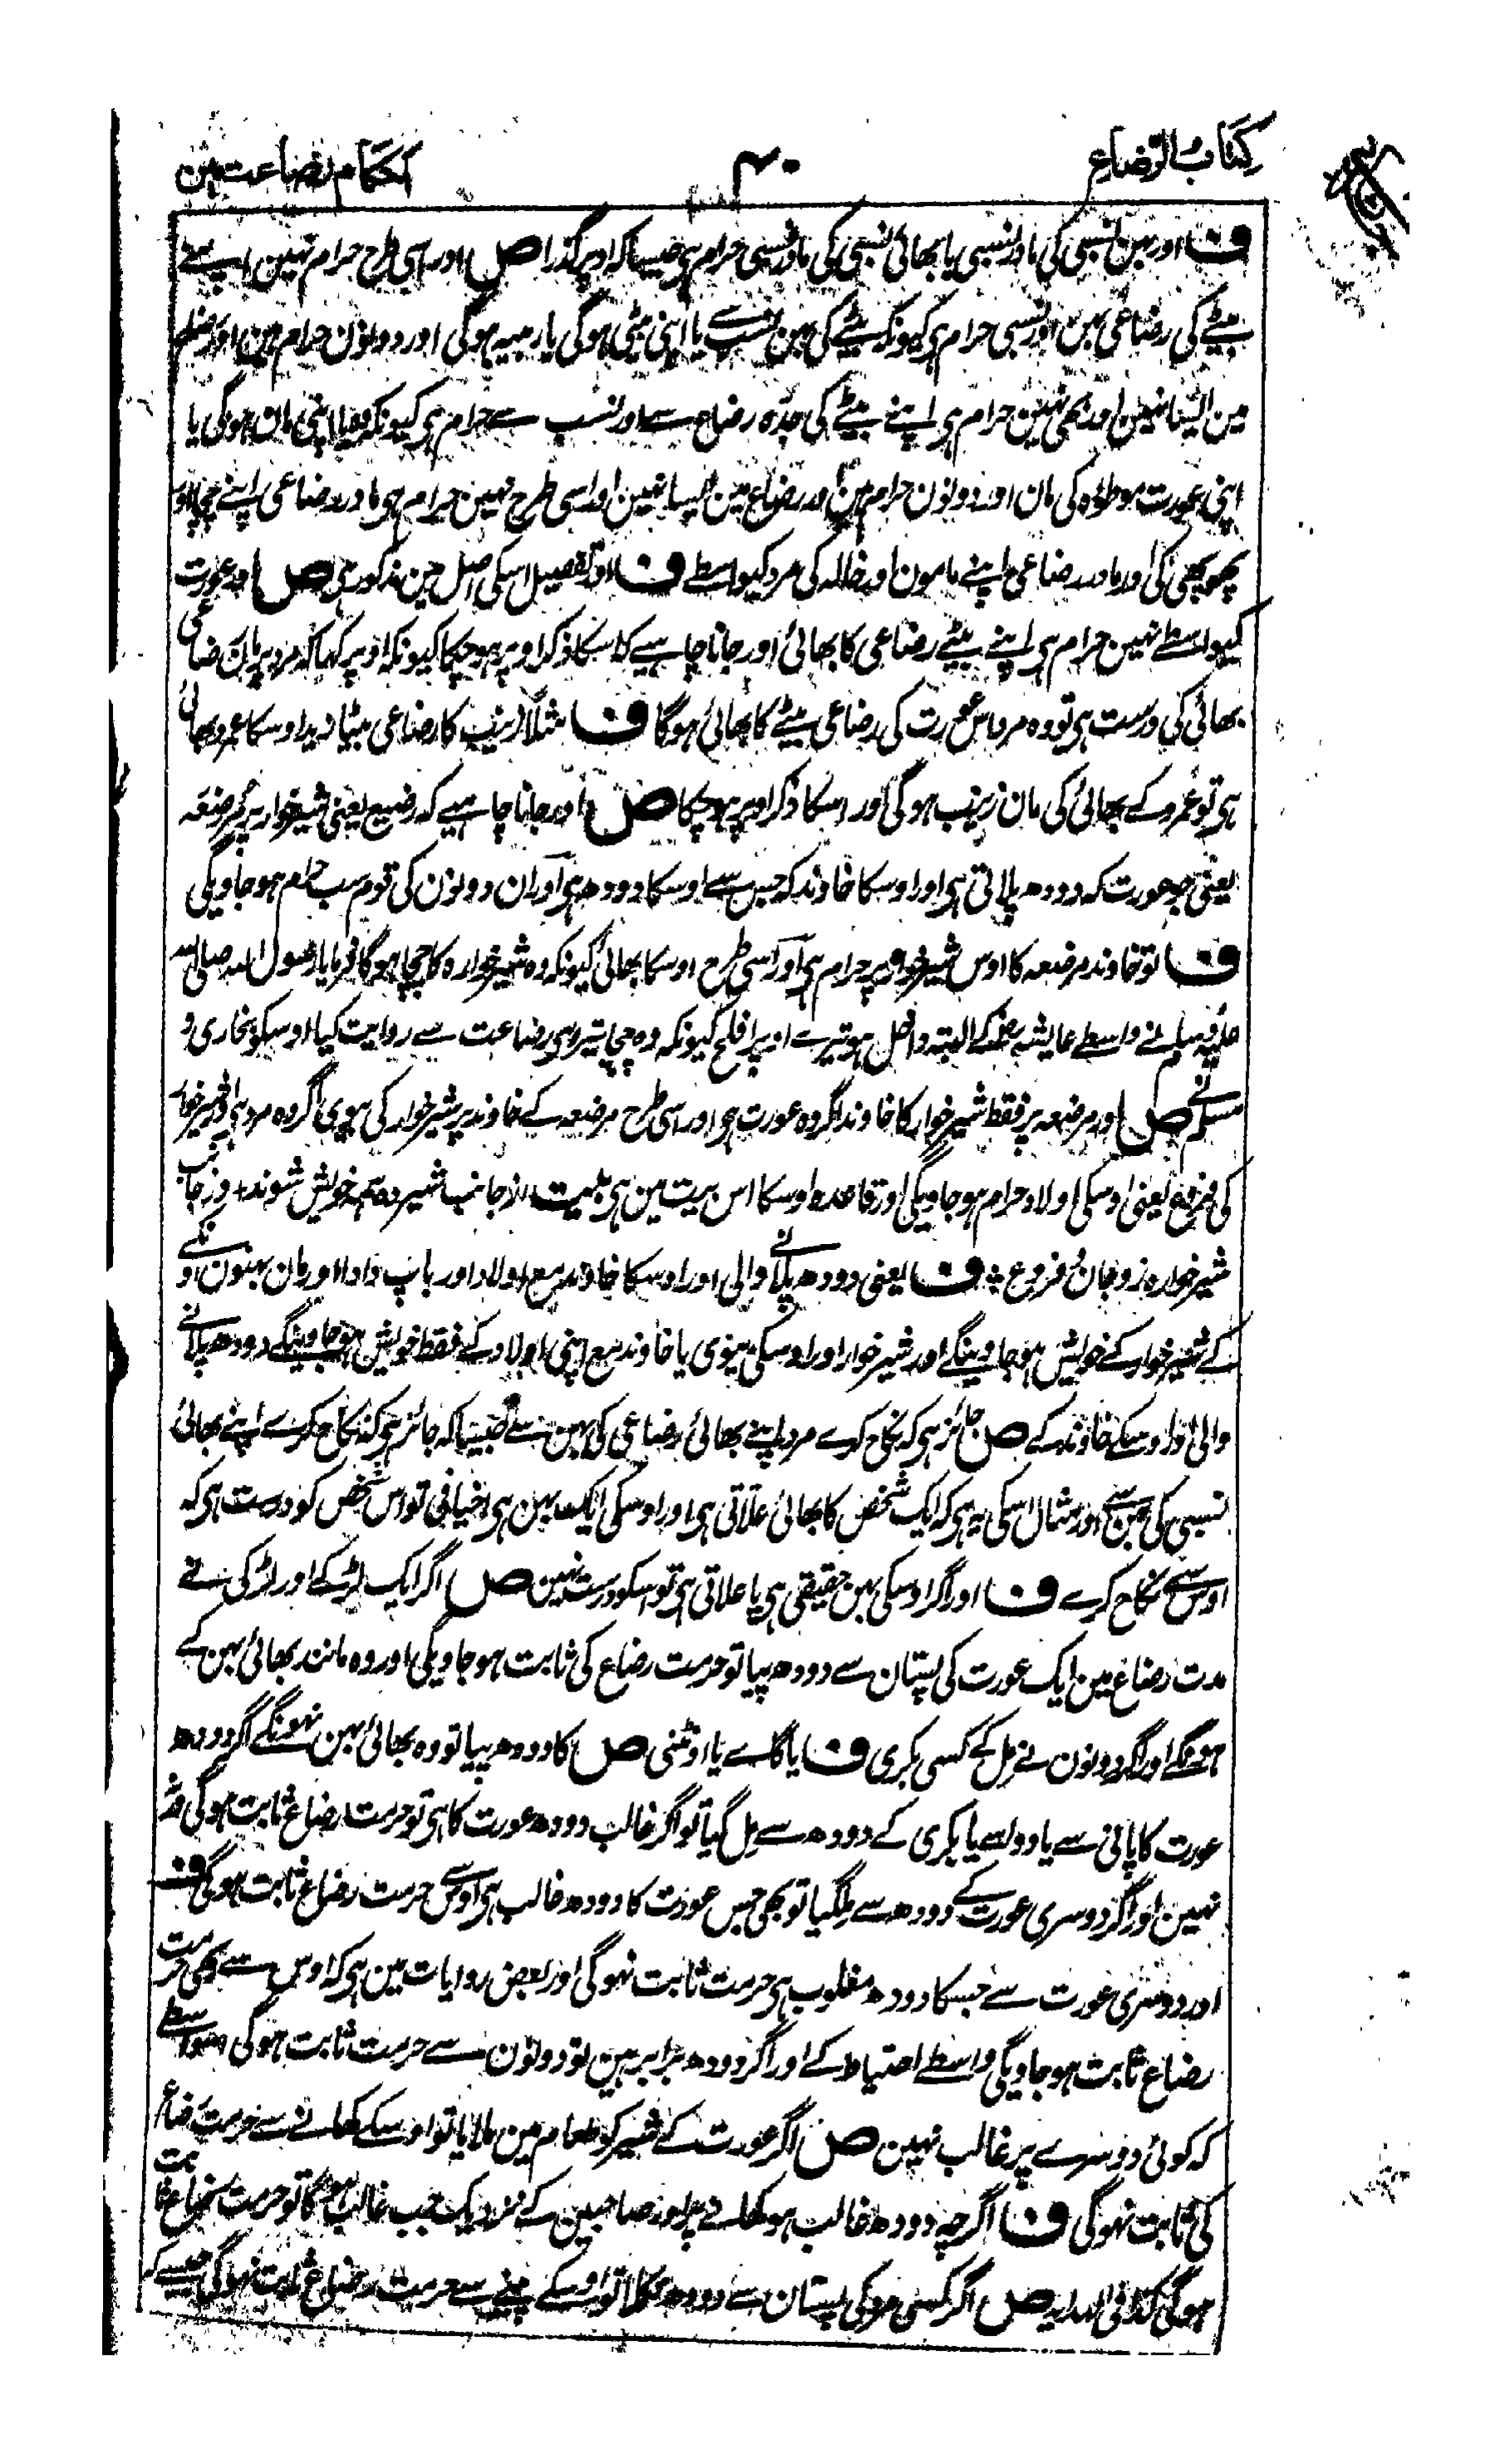 کتاب الرضاع
۴۰
احکام رضاعت مین
ف اور بہن نسبی کی مادر نسبی یا بھائی نسبی کی مادر نسبی حرام ہی جیسا کہ اوپر گذرا ص اور اسی طرح حرام نہین اپنے
بیٹے کی رضاعی بہن اور نسبی حرام ہی کیونکہ بیٹے کی بہن نسب سے یا اپنی بیٹی ہوگی یا ربیبہ ہوگی اور دونون حرام ہین اور رضاع
مین ایسا نہین اور بھی نہین حرام ہی اپنے بیٹے کی جدہ رضاع سے اور نسب سے حرام ہی کیونکہ وہ یا اپنی مان ہوگی یا
اپنی عورت موطؤہ کی مان اور دونون حرام ہین اور رضاع مین ایسا نہین اور اسی طرح نہین حرام ہی مادر رضاعی اپنے چچا اور
پھوپھی کی اور مادر رضاعی اپنے مامون اور خالہ کی مرد کیواسطے ف اور تفصیل اسکی اصل مین مذکور ہی ص اور عورت
کیواسطے نہین حرام ہی اپنے بیٹے رضاعی کا بھائی اور جانا چاہیے کہ اسکا ذکر اوپر ہوچکا کیونکہ اوپر کہا کہ مرد پر مان رضاعی
بھائی کی درست ہی تو وہ مرد اس عورت کی رضاعی بیٹے کا بھائی ہوگا ف مثلاً زینب کا رضاعی بیٹا زید اوسکا عمرو بھائی
ہی تو عمرو کے بھائی کی مان زینب ہوگی اور اسکا ذکر اوپر ہوچکا ص اور جانا چاہیے کہ رضیع یعنی شیر خوار پر مرضعہ
یعنی جو عورت کہ دودھ پلاتی ہی اور اوسکا خاوند کہ جس سے اوسکا دودھ ہی اور ان دونون کی قوم سب حرام ہوجاویگی
ف تو خاوند مرضعہ کا اوس شیر خوار پر حرام ہی اور اسی طرح اوسکا بھائی کیونکہ وہ شیر خوارہ کا چچا ہوگا فرمایا رسول اللہ صلی اللہ
علیہ وسلم نے واسطے عایشہ رض کے البتہ داخل ہو تیرے اوپر افلح کیونکہ وہ چچا تیرا ہی رضاعت سے روایت کیا اوسکو بخاری و
مسلم نے ص اور مرضعہ پر فقط شیر خوار کا خاوند اگر وہ عورت ہی اور اسی طرح مرضعہ کے خاوند پر شیر خوار کی بیوی اگر وہ مرد ہی اور شیر خوار
کی فروع یعنی اوسکی اولاد حرام ہوجاویگی اور قاعدہ اوسکا اس بیت مین ہی بیت از جانب شیر دہ ہمہ خویش شوند + وز جانب
شیر خوارہ زوجان و فروع ف یعنی دودھ پلانے والی اور اوسکا خاوند مع اولاد اور باپ دادا اور مان بہنون اونکے
کے شیر خوار کے خویش ہوجاوینگے اور شیر خوار اور اوسکی بیوی یا خاوند مع اپنی اولاد کے فقط خویش ہوجاوینگے دودھ پلانے
والی اور اوسکے خاوند کے ص جائز ہی کہ نکاح کرے مرد اپنے بھائی رضاعی کی بہن سے جیسا کہ جائز ہی کہ نکاح کرے اپنے بھائی
نسبی کی بہن سے اور مثال اسکی یہ ہی کہ ایک شخص کا بھائی علاتی ہی اور اوسکی ایک بہن ہی اخیافی تو اس شخص کو درست ہی کہ
اوس سے نکاح کرے ف اور اگر اوسکی بہن حقیقی ہی یا علاتی ہی تو اسکو درست نہین ص اگر ایک لڑکے اور لڑکی نے
مدت رضاع مین ایک عورت کی پستان سے دودھ پیا تو حرمت رضاع کی ثابت ہوجاویگی اور وہ مانند بھائی بہن کے
ہونگے اور اگر دونون نے مل کے کسی بکری ف یا گاے یا اونٹنی ص کا دودھ پیا تو وہ بھائی بہن نہونگے اگر دودھ
عورت کا پانی سے یا دوا سے یا بکری کے دودھ سے مل گیا تو اگر غالب دودھ عورت کا ہی تو حرمت رضاع ثابت ہوگی ورنہ
نہین اور اگر دوسری عورت کے دودھ سے ملگیا تو بھی جس عورت کا دودھ غالب ہی اوس سے حرمت رضاع ثابت ہوگی ف
اور دوسری عورت سے جسکا دودھ مغلوب ہی حرمت ثابت نہوگی اور بعض روایات مین ہی کہ اوس سے بھی حرمت
رضاع ثابت ہوجاویگی واسطے احتیاط کے اور اگر دودھ برابر ہین تو دونون سے حرمت ثابت ہوگی اسواسطے
کہ کوئی دوسرے پر غالب نہین ص اگر عورت کے شیر کو طعام مین ملایا تو اوسکے کھانے سے حرمت رضاع
کی ثابت نہوگی ف اگرچہ دودھ غالب ہو کھانے پر اور صاحبین کے نزدیک جب غالب ہوگا تو حرمت رضاع ثابت
ہوگی کذا فی الہدایہ ص اگر کسی مرد کی پستان سے دودھ نکلا تو اوسکے پینے سے حرمت رضاع ثابت نہوگی جیسے کہ